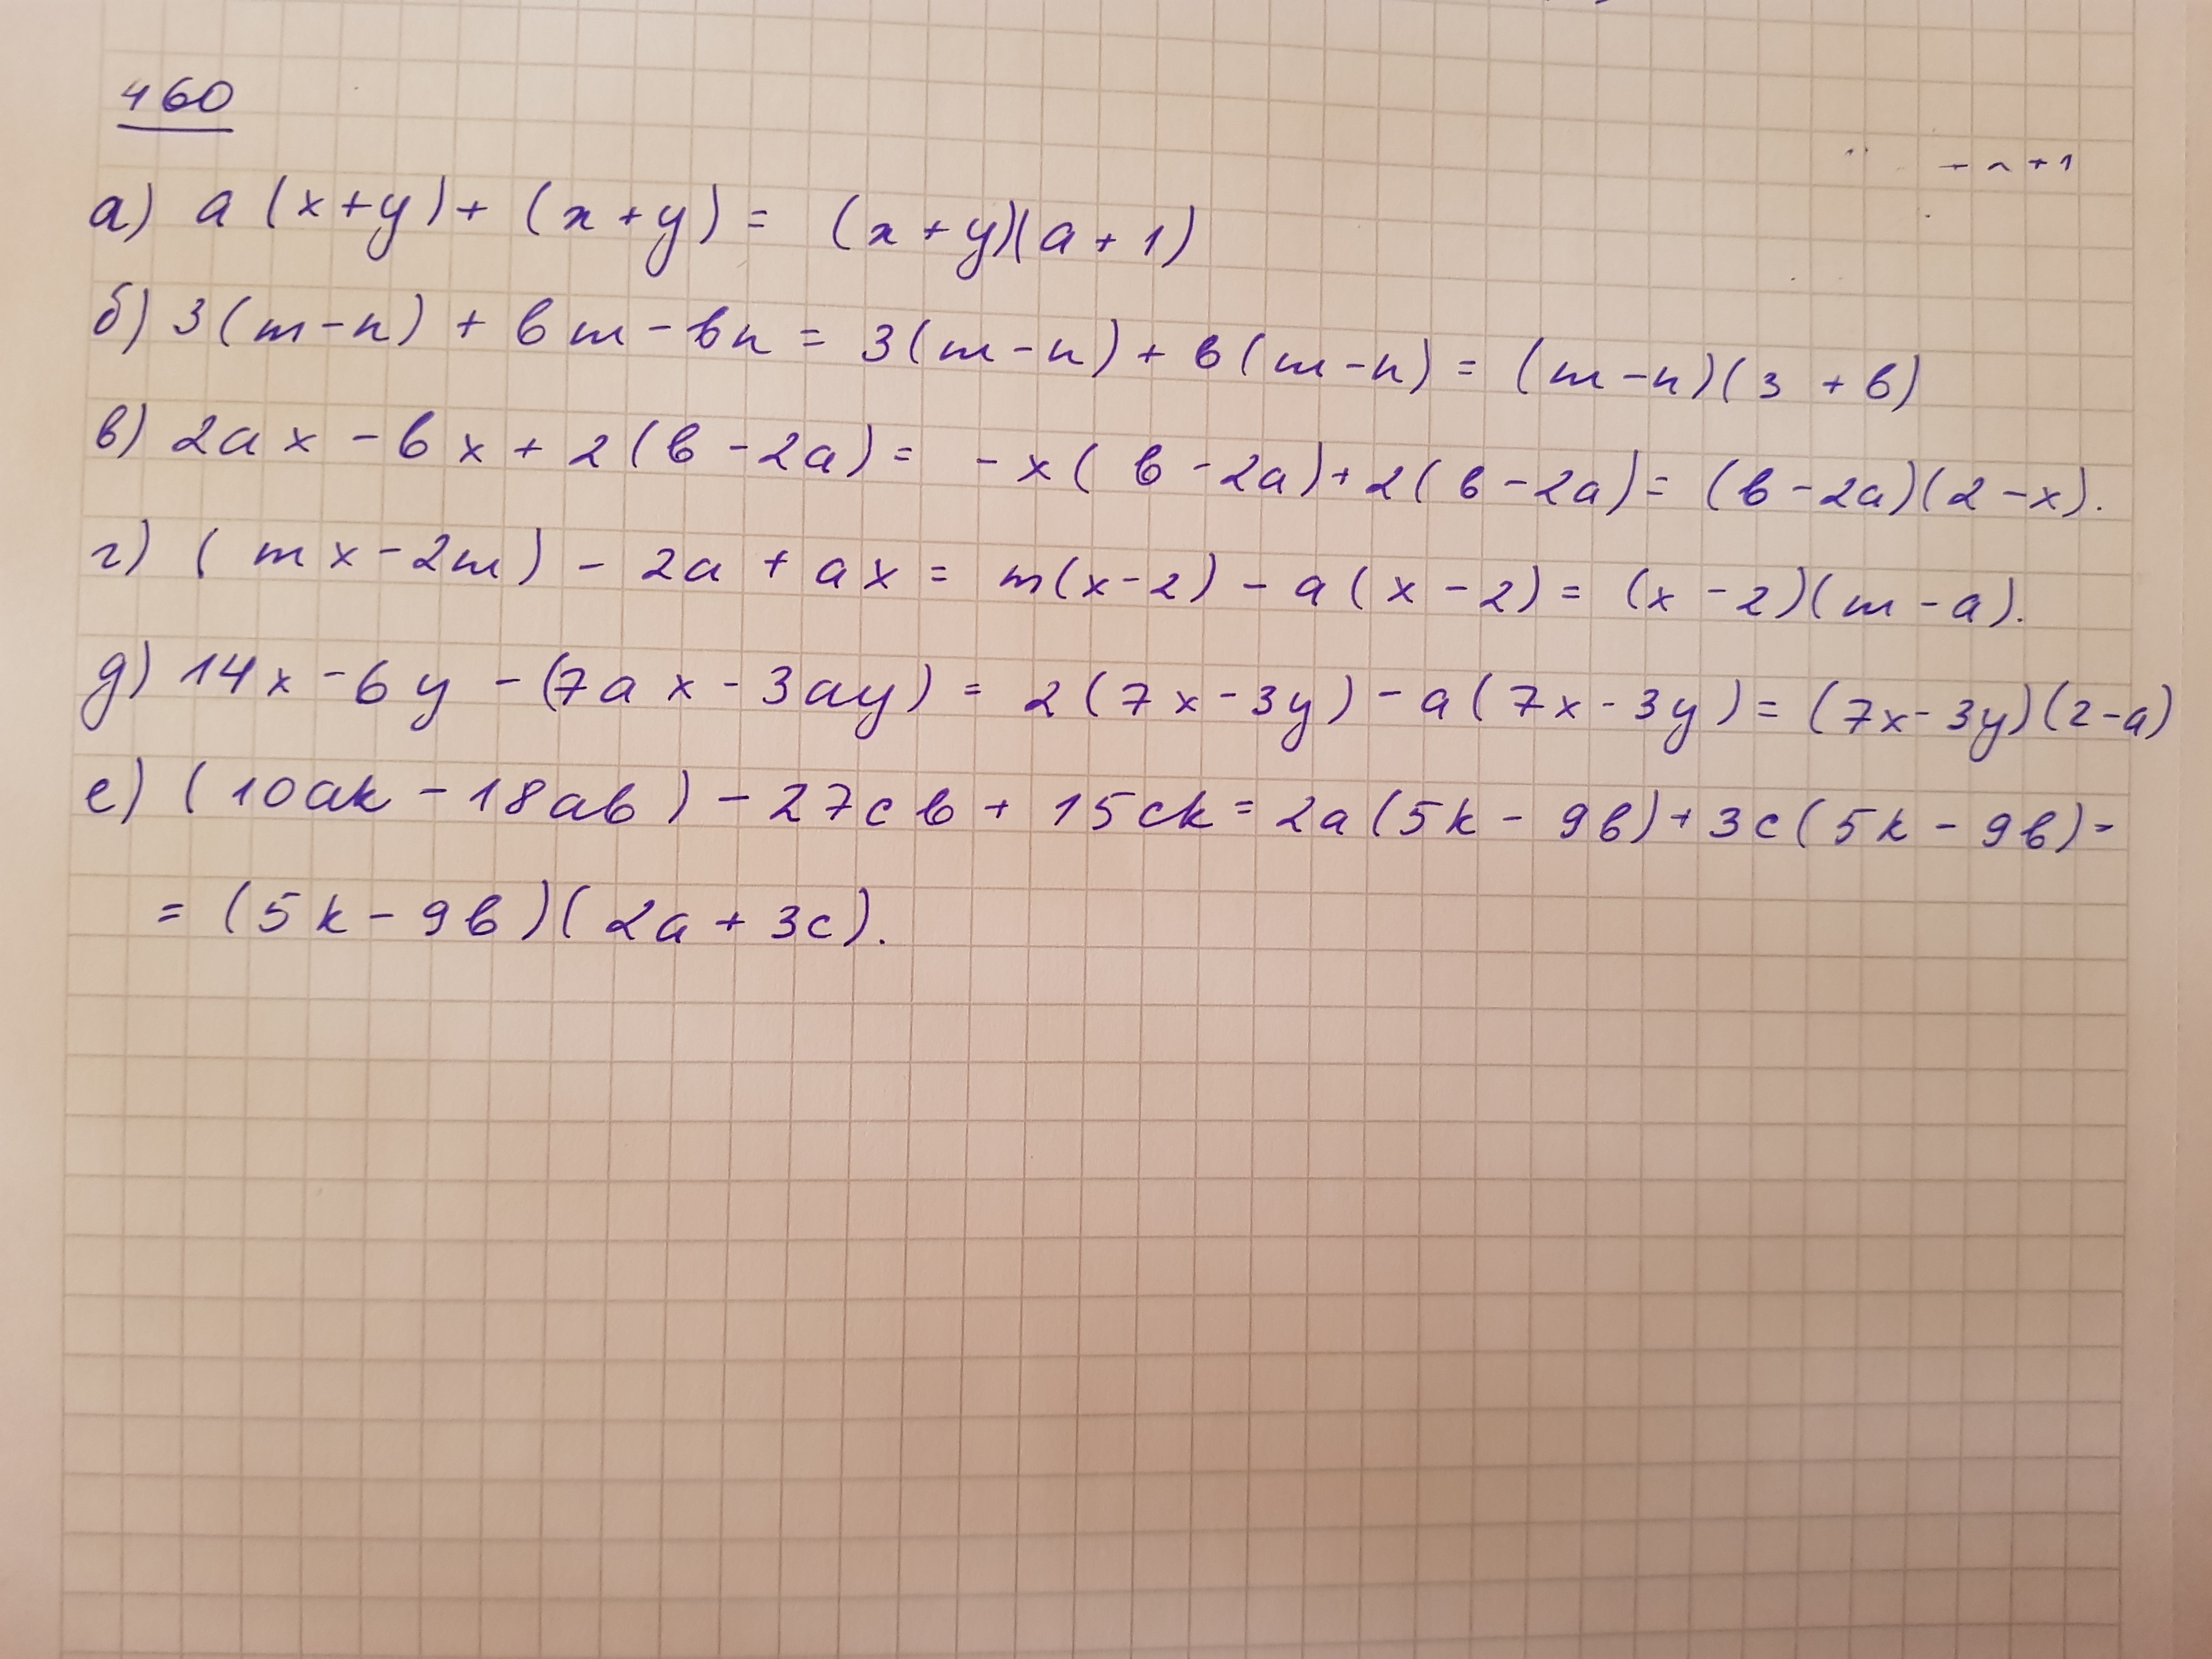 460
- n + 1
а) a (x+y) + (x+y) = (x+y)(a+1)
б) 3(m-n) + bm - bn = 3(m-n) + b(m-n) = (m-n)(3+b)
в) 2ax - bx + 2(b-2a) = -x(b-2a)+2(b-2a) = (b-2a)(2-x).
г) (mx-2m) - 2a + ax = m(x-2) - a(x-2) = (x-2)(m-a).
д) 14x - 6y - (7ax - 3ay) = 2(7x-3y) - a(7x-3y) = (7x-3y)(2-a)
е) (10ak - 18ab) - 27cb + 15ck = 2a(5k - 9b) + 3c(5k - 9b) =
= (5k - 9b)(2a + 3c).